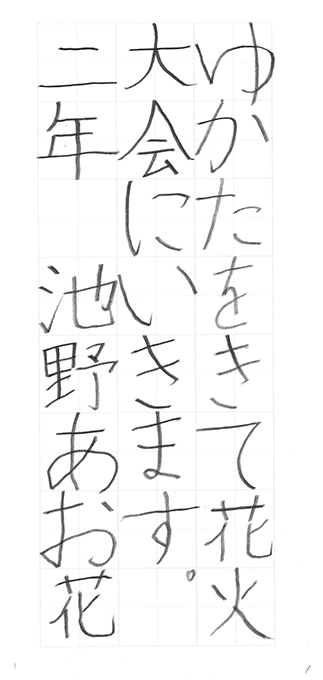 ゆかたをきて花火
大会にいきます。
二年 池野あお花